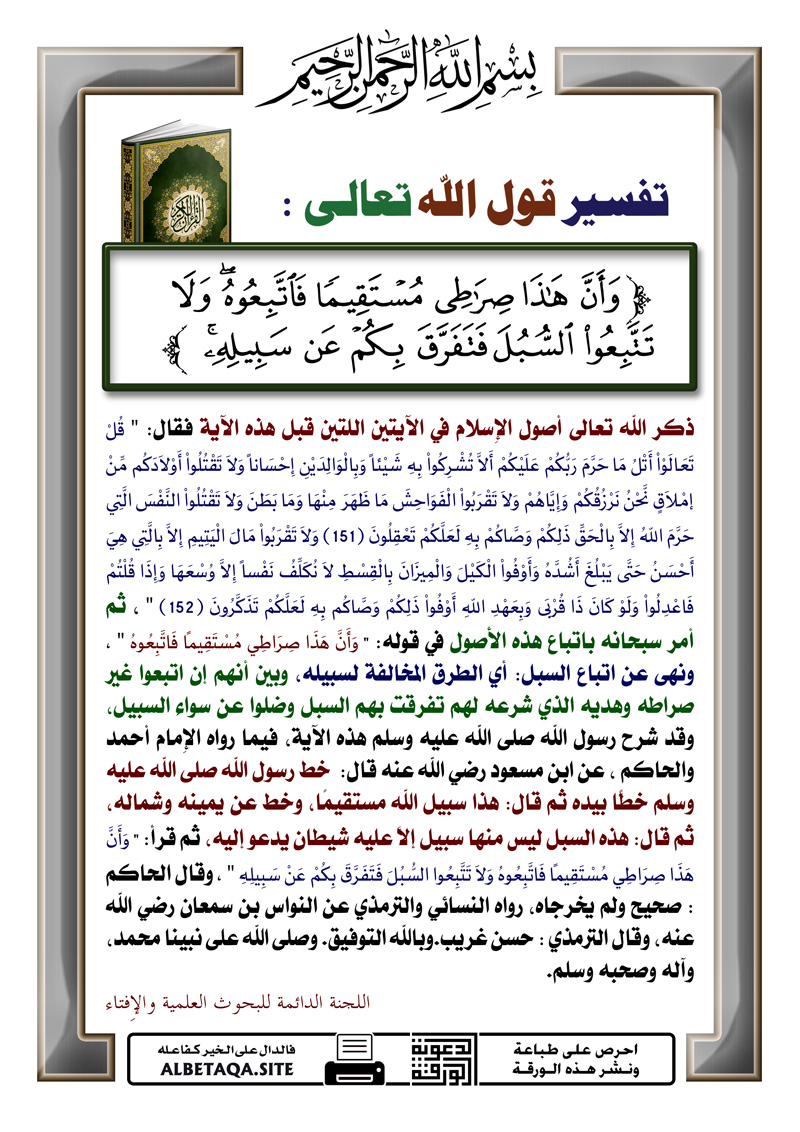 بسم الله الرحمن الرحيم
القرآن الكريم
تفسير قول الله تعالى :
﴿ وَأَنَّ هَٰذَا صِرَٰطِى مُسْتَقِيمًا فَٱتَّبِعُوهُ ۖ وَلَا
تَتَّبِعُوا۟ ٱلسُّبُلَ فَتَفَرَّقَ بِكُمْ عَن سَبِيلِهِۦ ۚ ﴾
ذكر الله تعالى أصول الإسلام في الآيتين اللتين قبل هذه الآية فقال: " قُلْ
تَعَالَوْاْ أَتْلُ مَا حَرَّمَ رَبُّكُمْ عَلَيْكُمْ أَلاَّ تُشْرِكُواْ بِهِ شَيْئاً وَبِالْوَالِدَيْنِ إِحْسَاناً وَلاَ تَقْتُلُواْ أَوْلاَدَكُم مِّنْ
إمْلاَقٍ نَّحْنُ نَرْزُقُكُمْ وَإِيَّاهُمْ وَلاَ تَقْرَبُواْ الْفَوَاحِشَ مَا ظَهَرَ مِنْهَا وَمَا بَطَنَ وَلاَ تَقْتُلُواْ النَّفْسَ الَّتِي
حَرَّمَ اللهُ إِلاَّ بِالْحَقِّ ذَلِكُمْ وَصَّاكُمْ بِهِ لَعَلَّكُمْ تَعْقِلُونَ (151) وَلاَ تَقْرَبُواْ مَالَ الْيَتِيمِ إِلاَّ بِالَّتِي هِيَ
أَحْسَنُ حَتَّى يَبْلُغَ أَشُدَّهُ وَأَوْفُواْ الْكَيْلَ وَالْمِيزَانَ بِالْقِسْطِ لاَ نُكَلِّفُ نَفْساً إِلاَّ وُسْعَهَا وَإِذَا قُلْتُمْ
فَاعْدِلُواْ وَلَوْ كَانَ ذَا قُرْبَى وَبِعَهْدِ اللهِ أَوْفُواْ ذَلِكُمْ وَصَّاكُم بِهِ لَعَلَّكُمْ تَذَكَّرُونَ (152) " ، ثم
أمر سبحانه باتباع هذه الأصول في قوله: " وَأَنَّ هَذَا صِرَاطِي مُسْتَقِيمًا فَاتَّبِعُوهُ " ،
ونهى عن اتباع السبل: أي الطرق المخالفة لسبيله، وبين أنهم إن اتبعوا غير
صراطه وهديه الذي شرعه لهم تفرقت بهم السبل وضلوا عن سواء السبيل،
وقد شرح رسول الله صلى الله عليه وسلم هذه الآية، فيما رواه الإمام أحمد
والحاكم ، عن ابن مسعود رضي الله عنه قال: خط رسول الله صلى الله عليه
وسلم خطًا بيده ثم قال: هذا سبيل الله مستقيمًا، وخط عن يمينه وشماله،
ثم قال: هذه السبل ليس منها سبيل إلا عليه شيطان يدعو إليه، ثم قرأ: " وَأَنَّ
هَذَا صِرَاطِي مُسْتَقِيمًا فَاتَّبِعُوهُ وَلاَ تَتَّبِعُوا السُّبُلَ فَتَفَرَّقَ بِكُمْ عَنْ سَبِيلِهِ " ، وقال الحاكم
: صحيح ولم يخرجاه، رواه النسائي والترمذي عن النواس بن سمعان رضي الله
عنه، وقال الترمذي : حسن غريب.وبالله التوفيق. وصلى الله على نبينا محمد،
وآله وصحبه وسلم.
اللجنة الدائمة للبحوث العلمية والإفتاء
احرص على طباعة
ونشر هذه الورقة
الدعوية
الورقة
فالدال على الخير كفاعله
ALBETAQA.SITE